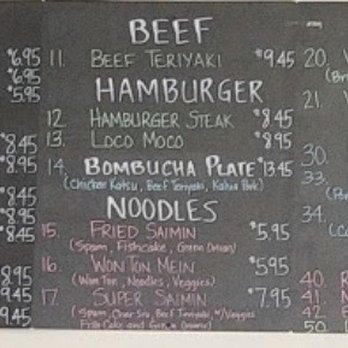 BEEF
$6.95 11. BEEF TERIYAKI $9.45 20.
$6.95
$5.95 HAMBURGER 21.
12. HAMBURGER STEAK $8.45
$8.45 13. LOCO MOCO $8.95 30.
$8.95 14. BOMBUCHA PLATE $13.45 33.
(Chicken Katsu, Beef Teriyaki, Kalua Pork)
$8.45
$8.95 NOODLES 34.
$8.45 15. FRIED SAIMIN $5.95
(Spam, Fishcake, Green Onion)
8.95 16. WON TON MEIN $5.95 40.
9.45 (Won Ton, Noodles, Veggies) 41.
9.45 17. SUPER SAIMIN $7.95 42.
(Spam, Char Siu, Beef Teriyaki, w/Veggies
Fish Cake and Green Onions) 50.